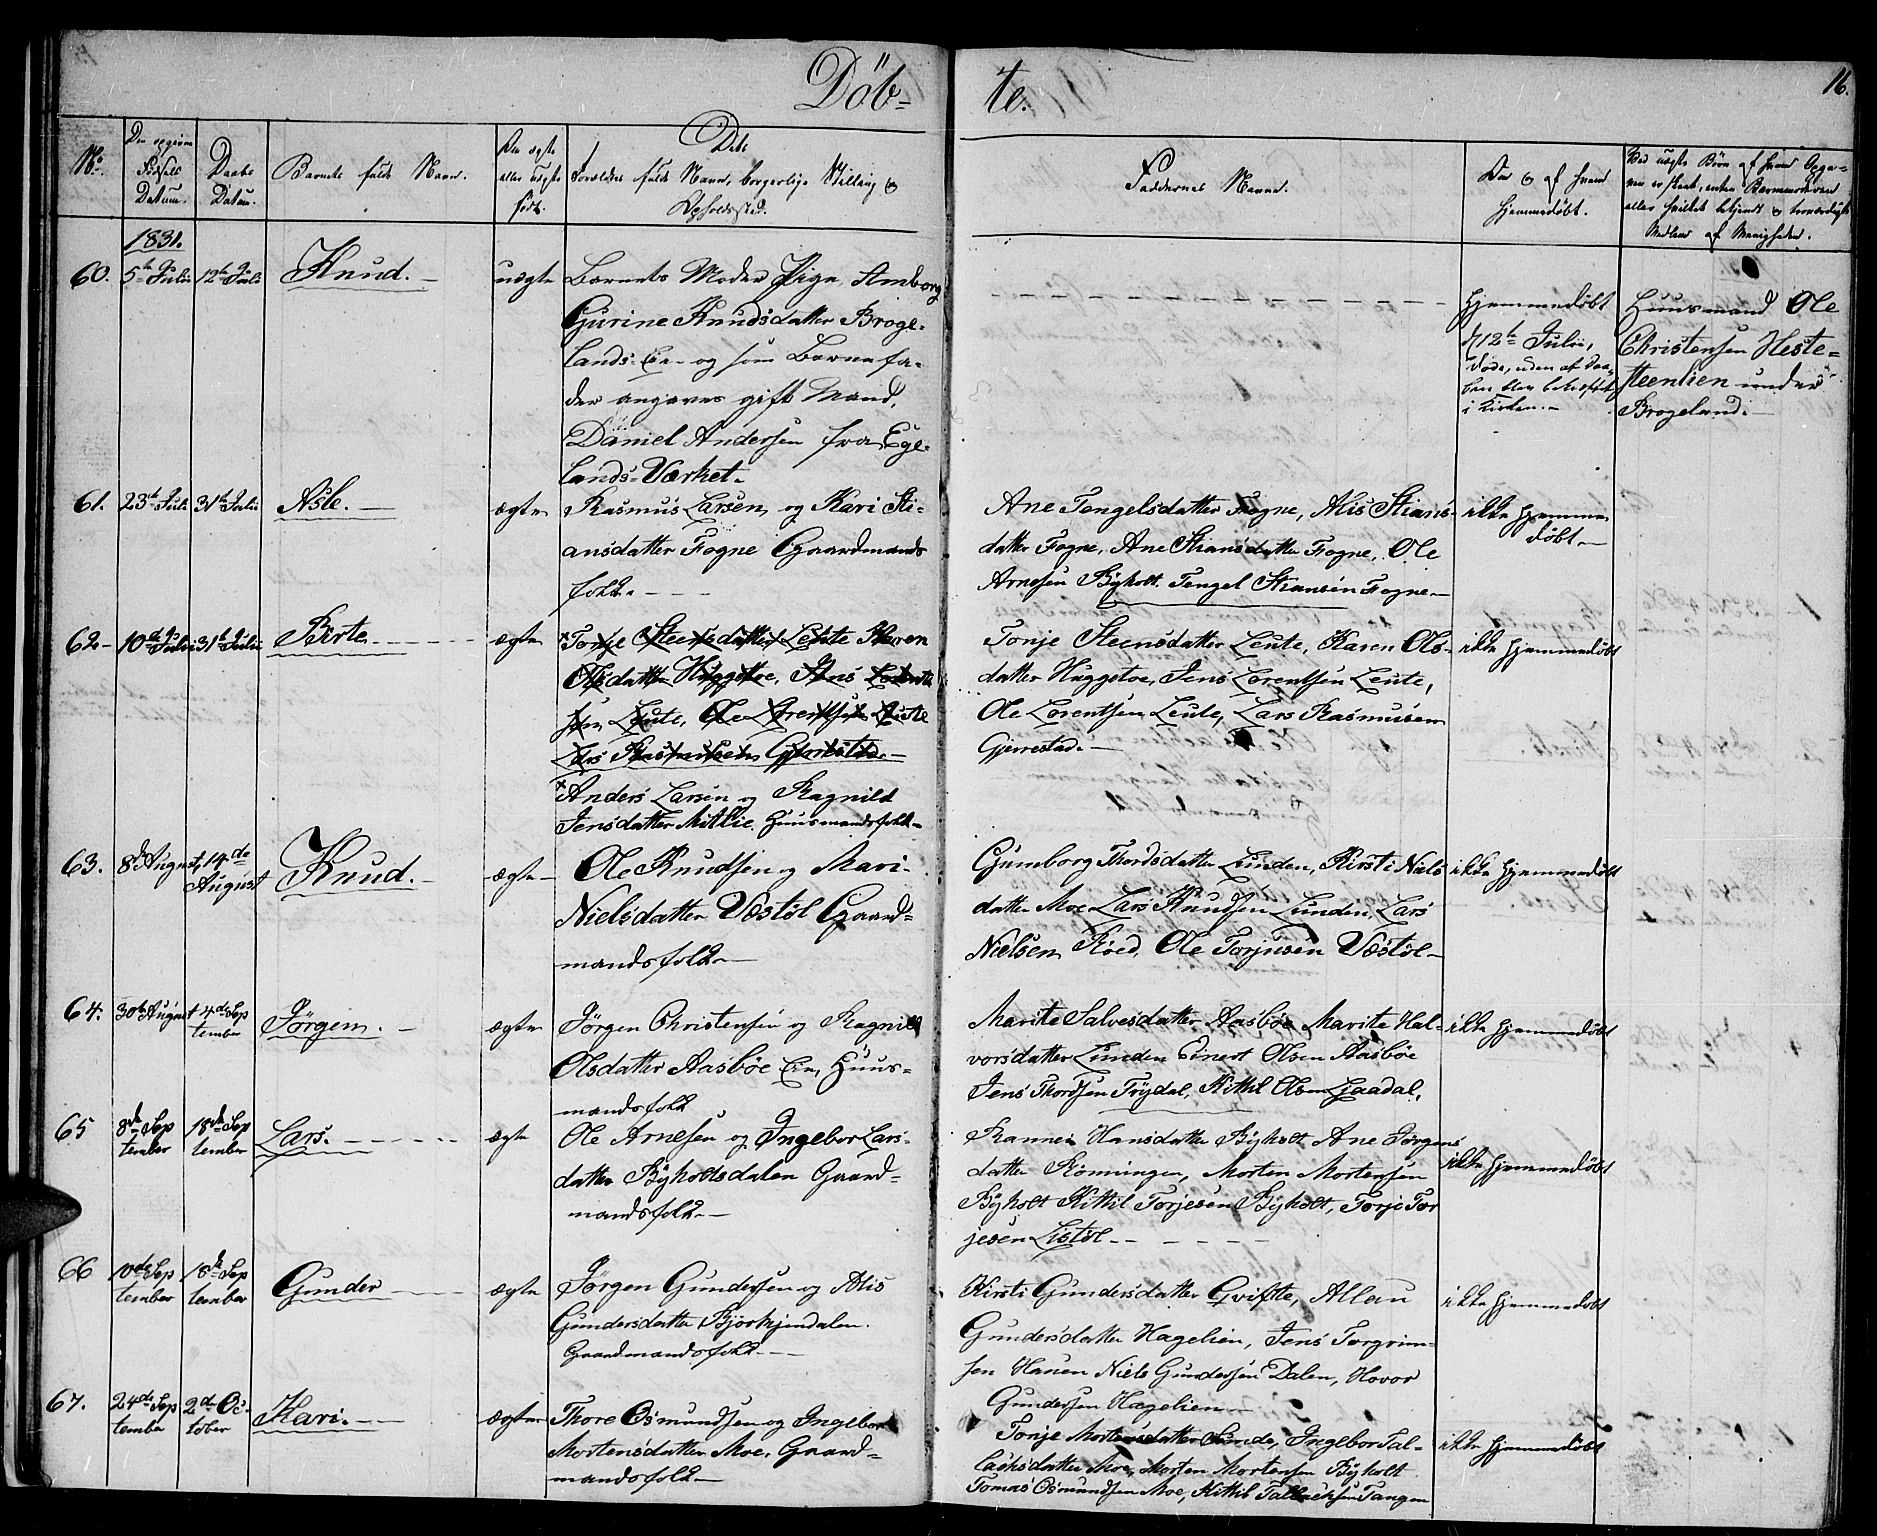 Döb-
te.
16.
No.
Den opgivne
Födsels
Datum.
Daabs
Datum.
Barnets fulde Navn.
Om ægte
eller uægte
født.
Dets
Forældres fulde Navn, borgerlige Stilling &
Opholdssted.
Faddernes Navne.
Om & af hvem
hjemmedøbt.
Ved uægte Børn af hvem Opga-
ven er skeet, enten Barnemoderen
eller hvilket bekjendt & troværdigt
Medlem af Menigheden.
1831.
60. 5te Julii 12te Julii Knud. uægte
Barnets Moder Pige Amborg
Gurine Knudsdatter Broge-
lands-Eie og som Barnefa-
der angaves gift Mand,
Daniel Andersen fra Ege-
lands-Værket.
hjemmedøbt
d 12te Julii,
døde, uden at Daa-
ben blev bekræftet
i Kirken.
Huusmand Ole
Christensen Heste-
steenlien under
Brogeland.
61. 23de Juli 31te Julii Asle. ægte
Rasmus Larsen og Kari Sti-
ansdatter Fogne Gaardmands
folk.
Ane Tengelsdatter Fogne, Alis Stians-
datter Fogne, Ane Stiansdatter Fogne, Ole
Arnesen Byholt. Tengel Stiansen Fogne
ikke hjemme
døbt
62 10de Julii 31te Julii Birte ægte
Tonje Steensdatter Leute Karen
Olsdatter Huggstoe, Jens Lorents
sen Leute, Ole Lorentsen Leute
Lars Rasmusen Gjerrestad.
Anders Larsen og Ragnild
Jensdatter Mitlie. Huusmandsfolk
Tonje Steensdatter Leute, Karen Ols-
datter Huggstoe, Jens Lorentsen Leute,
Ole Lorentsen Leute, Lars Rasmusen
Gjerrestad.
ikke hjemmedøbt
63. 8de August 14de
August Knud. ægte
Ole Knudsen og Mari
Nielsdatter Væstøl Gaard-
mandsfolk
Gumborg Thordsdatter Lunden, Kirsti Niels
datter Moe Lars Knudsen Lunden, Lars
Nielsen Røed, Ole Torjusen Væstøl
ikke hjemmedøbt
64. 30te August 4de Sep
tember Jörgen. ægte
Jörgen Christensen og Ragnild
Olsdatter Aasbøe Eie, Huus-
mandsfolk
Marite Salvesdatter Aasbøe Marite Hal-
vorsdatter Lunden Einert Olsen Aasbøe
Jens Thordsen Trydal, Kittil Olsen Ljaadal,
ikke hjemmedøbt
65 8de Sep
tember 18de Sep
tember Lars. ægte
Ole Arnesen og Ingebor Lars-
datter Byholtsdalen Gaard-
mandsfolk
Rannei Hansdatter Byholt Ane Jörgens
datter Rønningen, Morten Mortensen
Byholt Kittil Torjesen Byholt, Torje Tor
jesen Listøl
ikke hjemmedøbt
66 10de Sep
tember 18de Sep
tember Gunder ægte
Jörgen Gundersen og Alis
Gundersdatter Bjorkjendalen.
Gaardmandsfolk
Kirsti Gundersdatter Qvifte, Allau
Gundersdatter Hagelien, Jens Torgrim-
sen Hauen Niels Gundersen Dalen, Hovor
Gundersen Hagelien
ikke hjemmedøbt
67. 24de Sep
tember 2d Oc
tober Kari. ægte
Thore Osmundsen og Ingebor
Mortensdatter Moe, Gaard-
mandsfolk
Tonje Mortensdatter Sunde, Ingebor Tal-
lachsdatter Moe, Morten Mortensen Byholt
Tomas Osmundsen Moe, Kittil Tallachsen Tangen
ikke hjemmedøbt